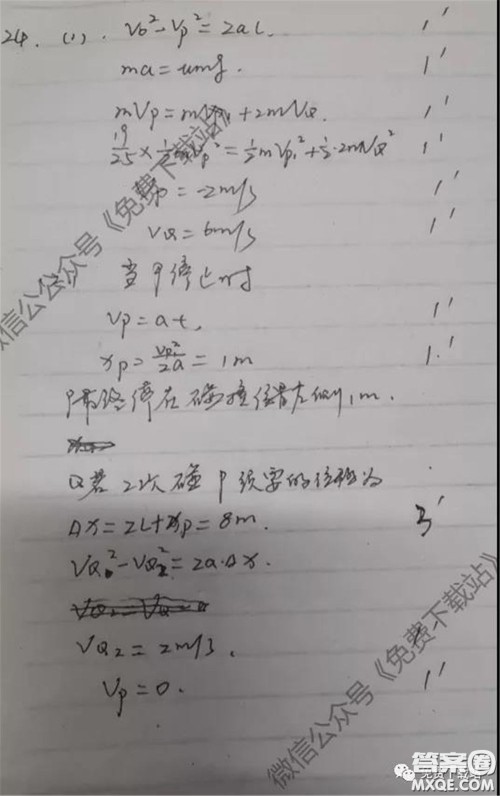 24. (1). V₀²-Vp²=2aL. 1'
ma=umg. 1'
mVp=mVp₁+2mVQ. 1'
19/25×1/2mVp²=1/2mVp₁²+1/2·2mVQ² 1'
=-2m/s 1'
VQ=6m/s 1'
当P停止时
Vp=at, 1'
xp=Vp²/2a=1m 1.'
P最终停在碰撞位置左侧1m.
Q若2次碰P须要的位移为
Δx=2L+xp=8m. 3'
VQ²-VQ₂²=2a·Δx.
VQ₂=2m/s.
Vp=0. 1'
微信公众号《免费下载站》
微信公众号《免费下载站》
免费下载站
答案圈
MXQE.COM